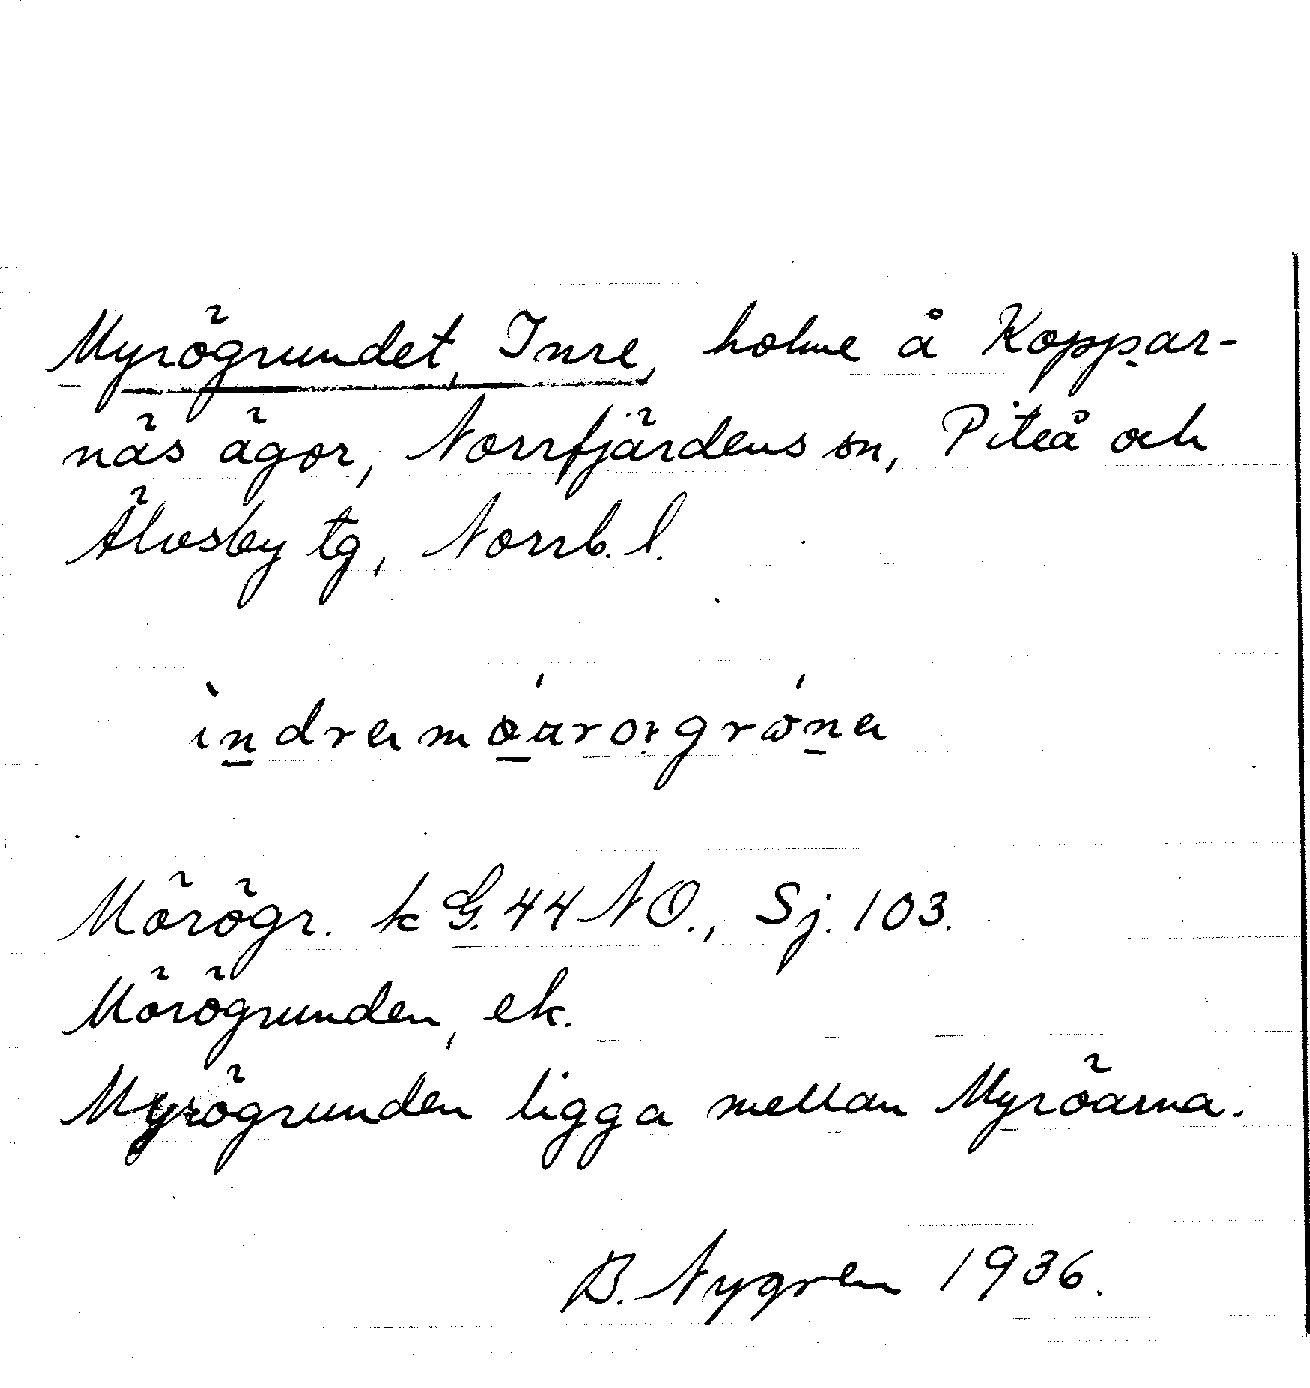 Myrögrundet, Inre, holme å Koppar-
näs ägor, Norrfjärdens sn, Piteå och
Älvsby tg, Norrb. l.
Mörögr. k G. 44 NO., Sj. 103.
Mörögrunden, ek.
Myrögrunden ligga mellan Myröarna.
B. Nygren 1936.